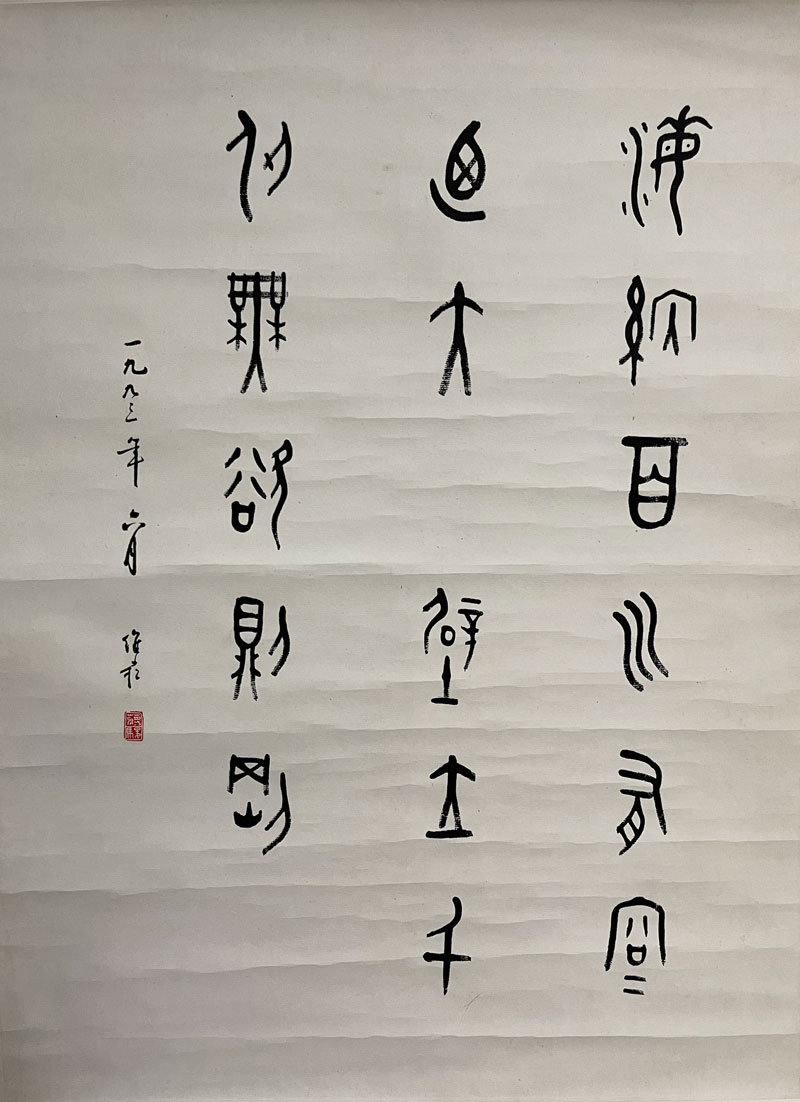 海納百川有容=
迺大壁立千
仞無欲則剛
一九九三年六月